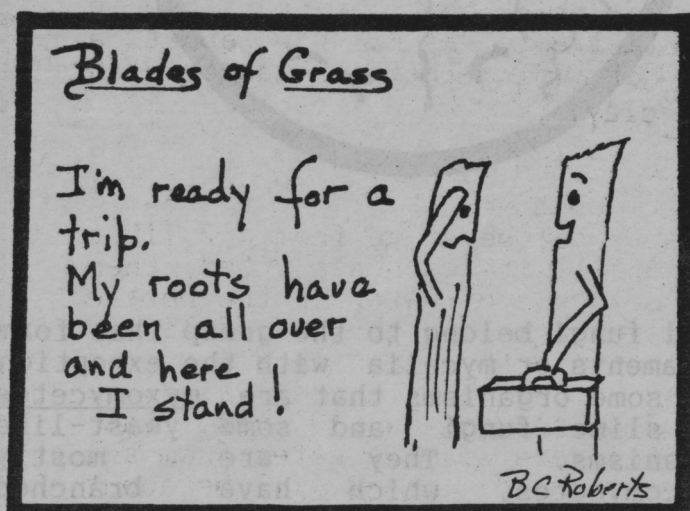 Blades of Grass
I'm ready for a
trip.
My roots have
been all over
and here
I stand!
BC Roberts